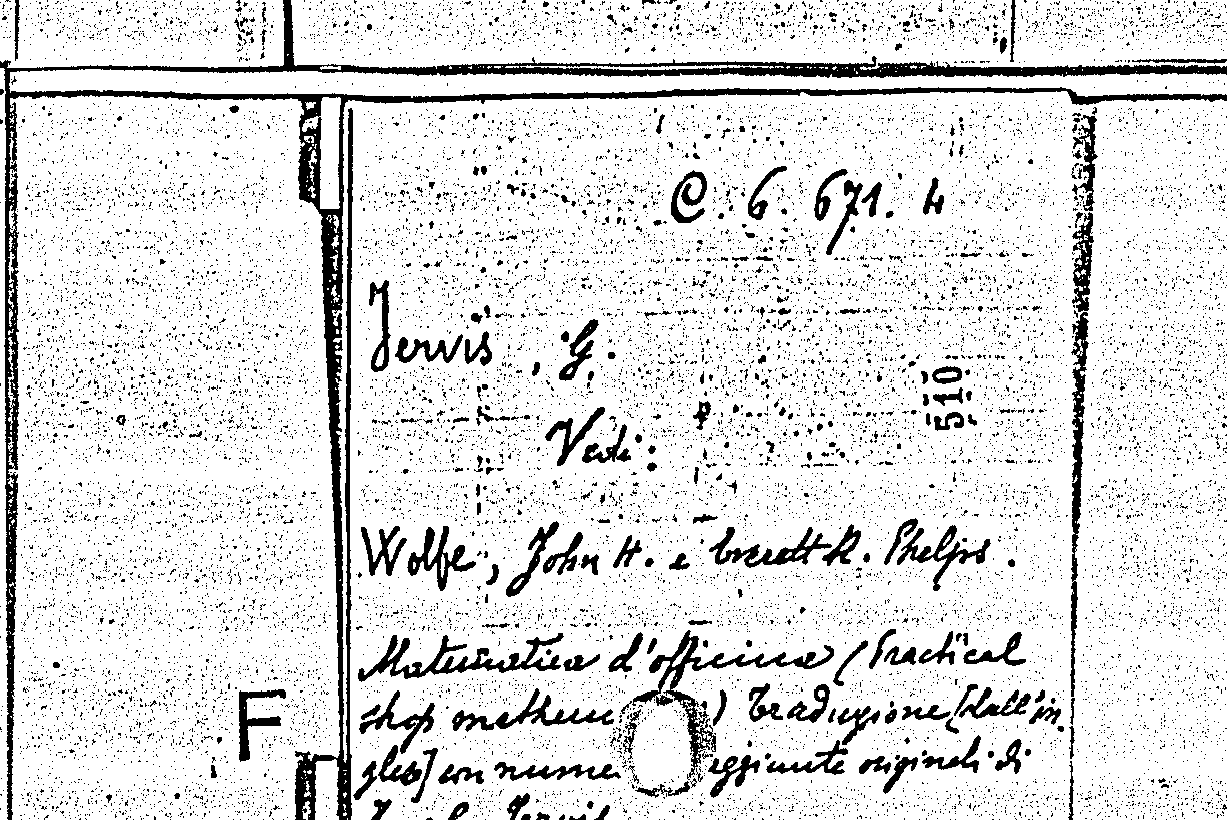 C. 6. 671. 4
Jervis, G.
510
Vedi:
Wolfe, John H. e Everett R. Phelps.
Matematica d'officina (Practical
shop mathem ) Traduzione [dall'in
glese] con nume aggiunte originali di
F
Jervis